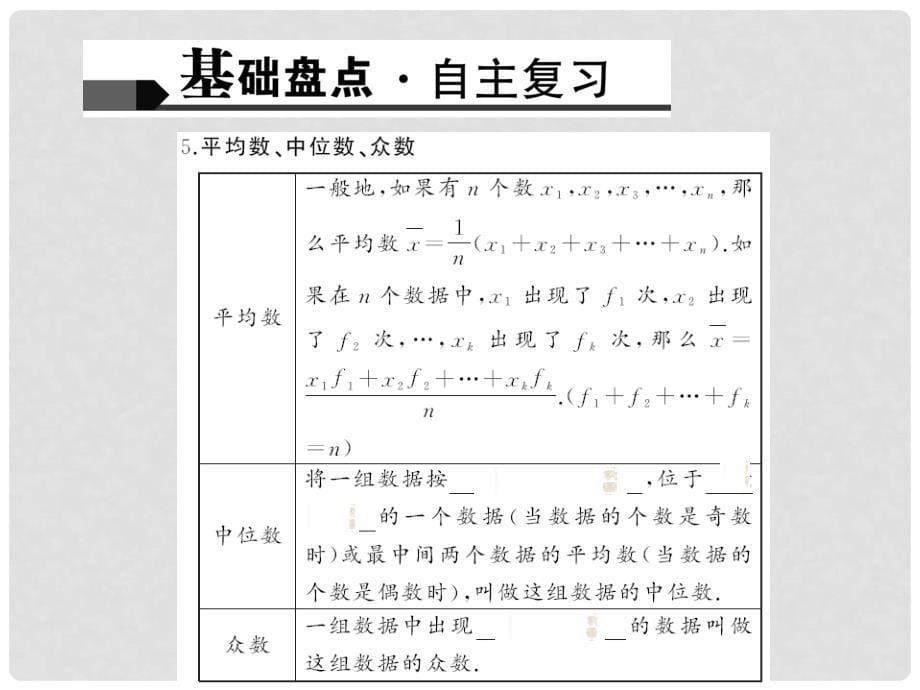 基础盘点·自主复习
5.平均数、中位数、众数
平均数
一般地,如果有 n 个数 x₁,x₂,x₃,…,xₙ,那
么平均数 x̄=1/n(x₁+x₂+x₃+…+xₙ).如
果在 n 个数据中,x₁ 出现了 f₁ 次,x₂ 出现
了 f₂ 次,…,xₖ 出现了 fₖ 次,那么 x̄=
(x₁f₁+x₂f₂+…+xₖfₖ)/n.(f₁+f₂+…+fₖ
=n)
中位数
将一组数据按 ,位于
的一个数据(当数据的个数是奇数
时)或最中间两个数据的平均数(当数据的
个数是偶数时),叫做这组数据的中位数.
众数
一组数据中出现 的数据叫做
这组数据的众数.